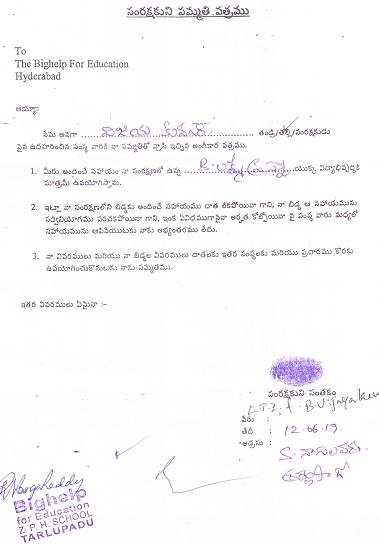 సంరక్షకుని సమ్మతి పత్రము
To
The Bighelp For Education
Hyderabad
అయ్యా:
నేను అనగా విజయ కుమారి తండ్రి/తల్లి/సంరక్షకుడు
పైన ఉదహరించిన సంస్థ వారికి నా సమ్మతితో వ్రాసి ఇచ్చిన అంగీకార పత్రము.
1. మీరు అందించే సహాయం నా సంరక్షణలో ఉన్న యొక్క విద్యాభివృద్ధికి
మాత్రమే ఉపయోగిస్తాను.
2. ఇట్లా నా సంరక్షణలోని బిడ్డకు అందించే సహాయము దాత లేకపోయినా గాని, నా బిడ్డ ఆ సహాయమును
సద్వినియోగము పరచకపోయినా గాని, ఇంక ఏవిధముగానైనా అర్హత కోల్పోయినా పై సంస్థ వారు మధ్యలో
సహాయమును ఆపివేయుటకు నాకు అభ్యంతరము లేదు.
3. నా వివరములు మరియు నా బిడ్డల వివరములు దాతలకు ఇతర సంస్థలకు మరియు ప్రచారము కొరకు
ఉపయోగించుకొనుటకు నాకు సమ్మతము.
ఇతర వివరములు ఏమైనా :-
సంరక్షకుని సంతకం
పేరు :
తేది : 12.06.19
అడ్రసు :
Bighelp
for Education
Z. P. H. SCHOOL
TARLUPADU